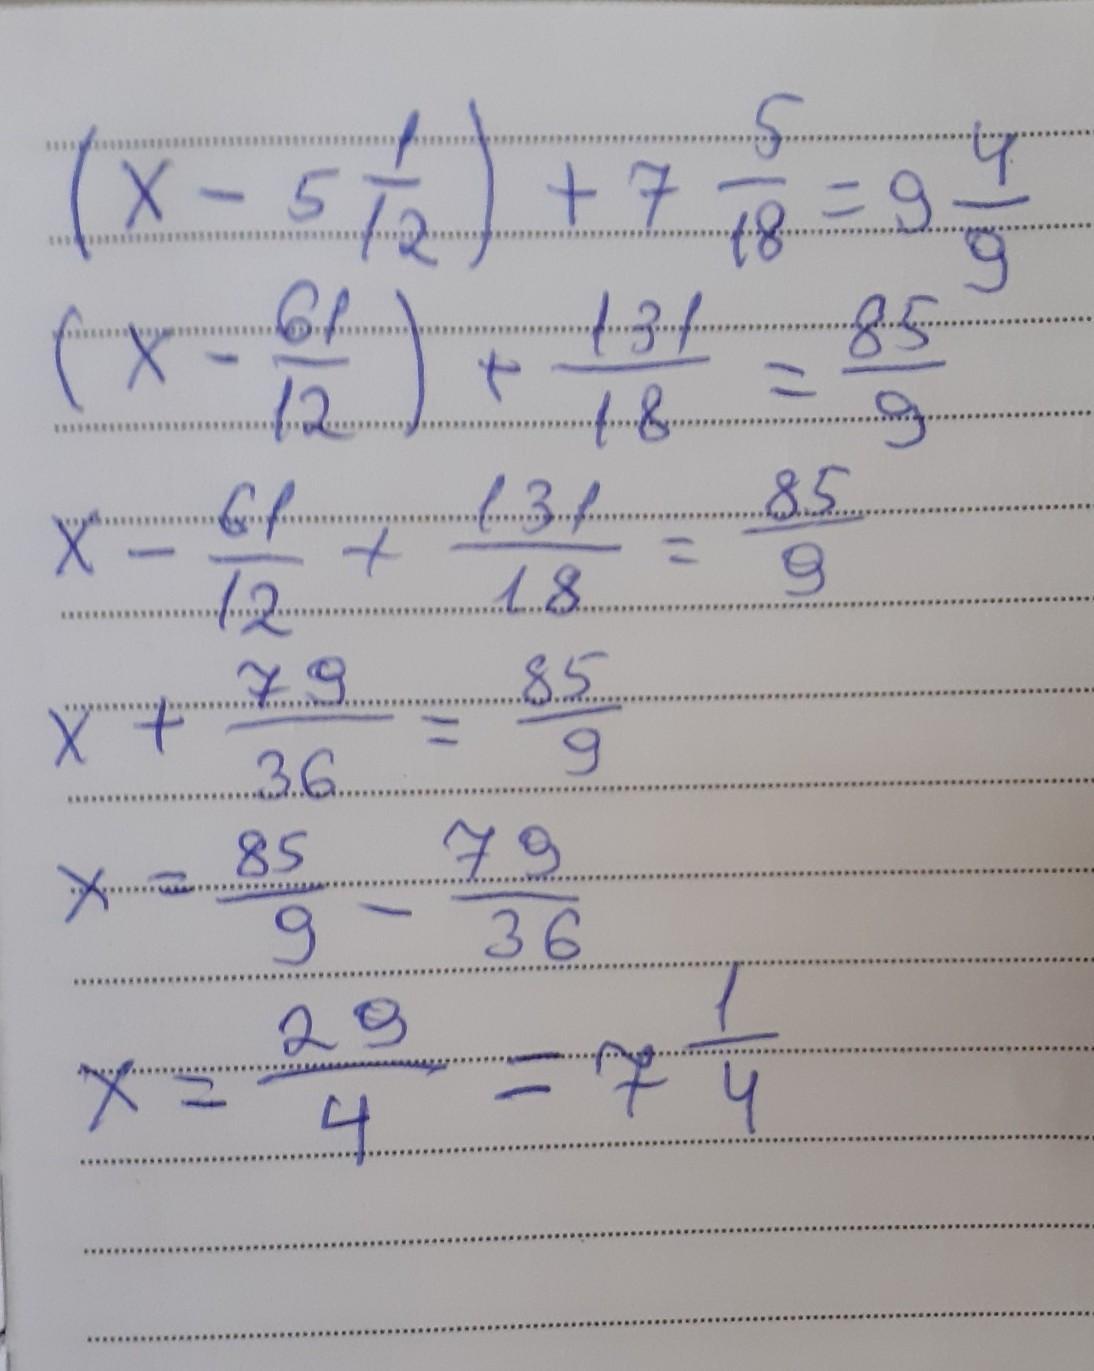 (x - 5 1/12) + 7 5/18 = 9 4/9
(x - 61/12) + 131/18 = 85/9
x - 61/12 + 131/18 = 85/9
x + 79/36 = 85/9
x = 85/9 - 79/36
x = 29/4 = 7 1/4